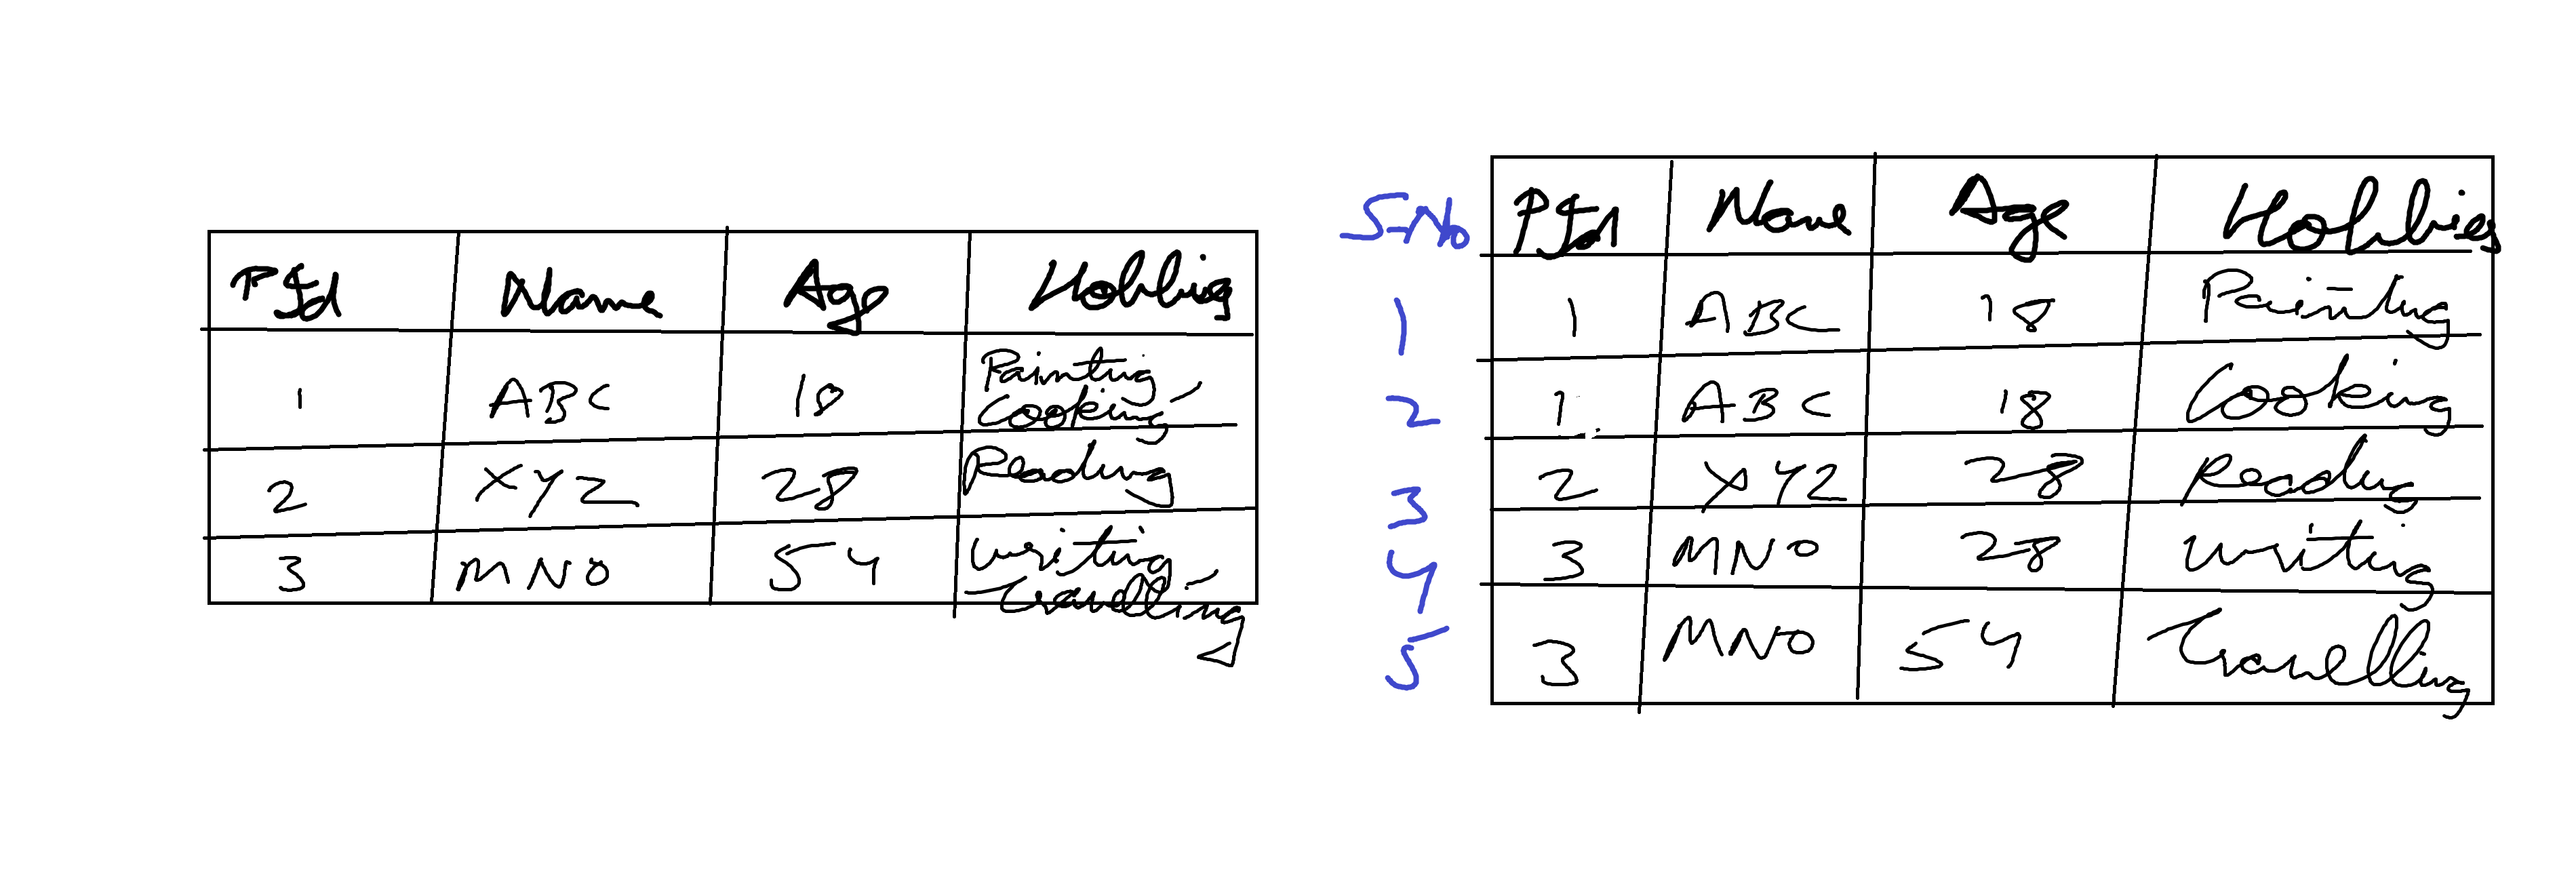 PId Name Age Hobbies
1 ABC 18 Painting,
Cooking
2 XYZ 28 Reading
3 MNO 54 Writing,
Travelling
S.No PId Name Age Hobbies
1 1 ABC 18 Painting
2 1 ABC 18 Cooking
3 2 XYZ 28 Reading
4 3 MNO 28 Writing
5 3 MNO 54 Travelling